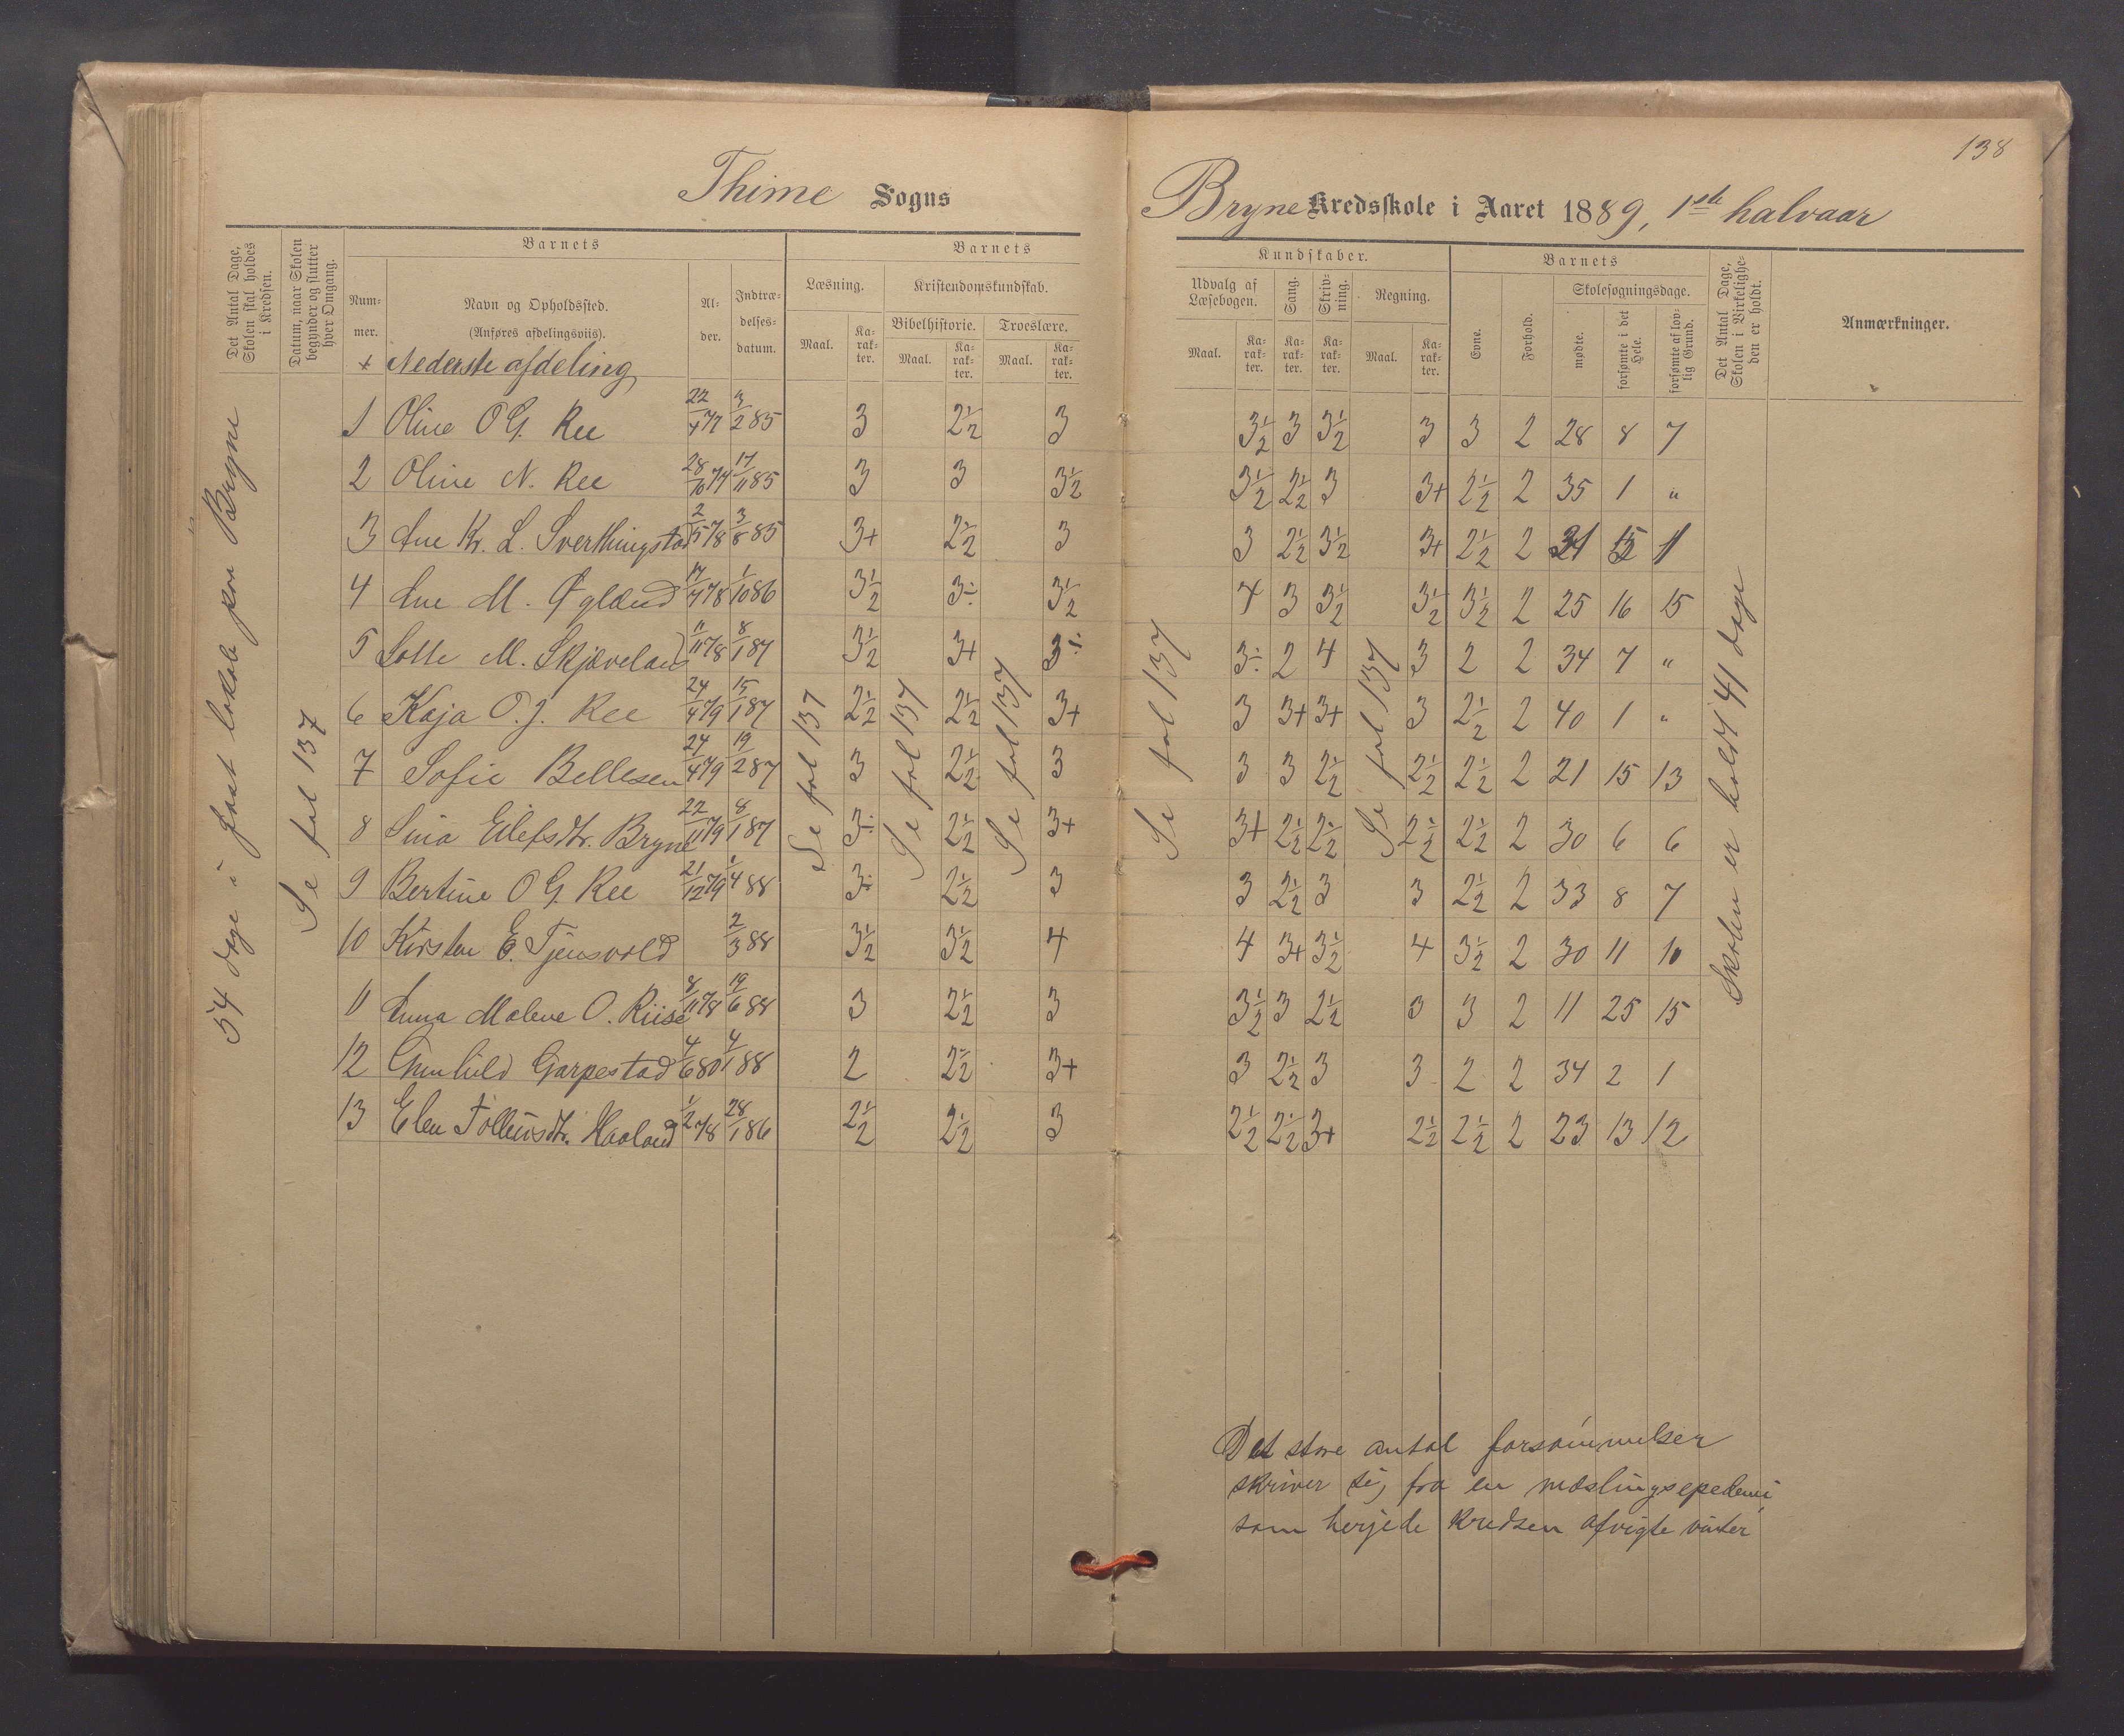 138
Thime Sogns
Bryne Kredsskole i Aaret 1889, 1ste halvaar
Det Antal Dage, Skolen skal holdes i Kredsen.
Datum, naar Skolen begynder og slutter hver Omgang.
Barnets
Nummer.
Navn og Opholdssted. (Anføres afdelingsviis).
Alder.
Indtrædelsesdatum.
Barnets
Læsning.
Kristendomskundskab.
Bibelhistorie.
Troeslære.
Maal.
Karakter.
Maal.
Karakter.
Maal.
Karakter.
Kundskaber.
Udvalg af Læsebogen.
Sang.
Skrivning.
Regning.
Maal.
Karakter.
Karakter.
Karakter.
Maal.
Karakter.
Barnets
Evne.
Forhold.
Skolesøgningsdage.
mødte.
forsømte i det Hele.
forsømte af lovlig Grund.
Det Antal Dage, Skolen i Virkeligheden er holdt.
Anmærkninger.
54 dage i fast lokale paa Bryne
Se fol 137
Se fol 137
Se fol 137
Se fol 137
Se fol 137
Se fol 137
Skolen er holdt 41 dage
+ Nederste afdeling
1 Oline O G. Ree 22/4 77 3/2 85 3 2½ 3 3½ 3 3½ 3 3 2 28 8 7
2 Oline N. Ree 28/10 74 17/11 85 3 3 3½ 3½ 2½ 3 3+ 2½ 2 35 1 "
3 Ane Kr. L. Sverthingstad 2/5 78 3/8 85 3+ 2½ 3 3 2½ 3½ 3+ 2½ 2
4 Ane M. Øglænd 17/4 78 1/10 86 3½ 3÷ 3½ 4 3 3½ 3½ 3½ 2 25 16 15
5 Lotte M. Skjæveland 11/11 78 8/1 87 3½ 3+ 3÷ 3÷ 2 4 3 2 2 34 7 "
6 Kaja O. J. Ree 24/4 79 15/1 87 2½ 2½ 3+ 3 3+ 3+ 3 2½ 2 40 1 "
7 Sofie Bellesen 24/4 79 19/2 87 3 2½ 3 3 3 2½ 2½ 2½ 2 21 15 13
8 Sina Eilefsdtr. Bryne 22/11 79 8/1 87 3÷ 2½ 3+ 3+ 2½ 2½ 2½ 2½ 2 30 6 6
9 Bertine O G. Ree 21/12 79 1/4 88 3÷ 2½ 3 3 2½ 3 3 2½ 2 33 8 7
10 Kirsten E. Tjensvold 2/3 88 3½ 3½ 4 4 3+ 3½ 4 3½ 2 30 11 10
11 Anna Malene O. Riise 8/11 78 19/6 88 3 2½ 3 3½ 3 2½ 3 3 2 11 25 15
12 Gunhild Garpestad 4/6 80 4/1 88 2 2½ 3+ 3 2½ 3 3 2 2 34 2 1
13 Elen Tolleivsdtr. Haaland 1/2 78 28/1 86 2½ 2½ 3 2½ 2½ 3+ 2½ 2½ 2 23 13 12
Det store antal forsømmelser
skriver sig fra en mæslingsepedemi,
som herjede kredsen afvigte vinter